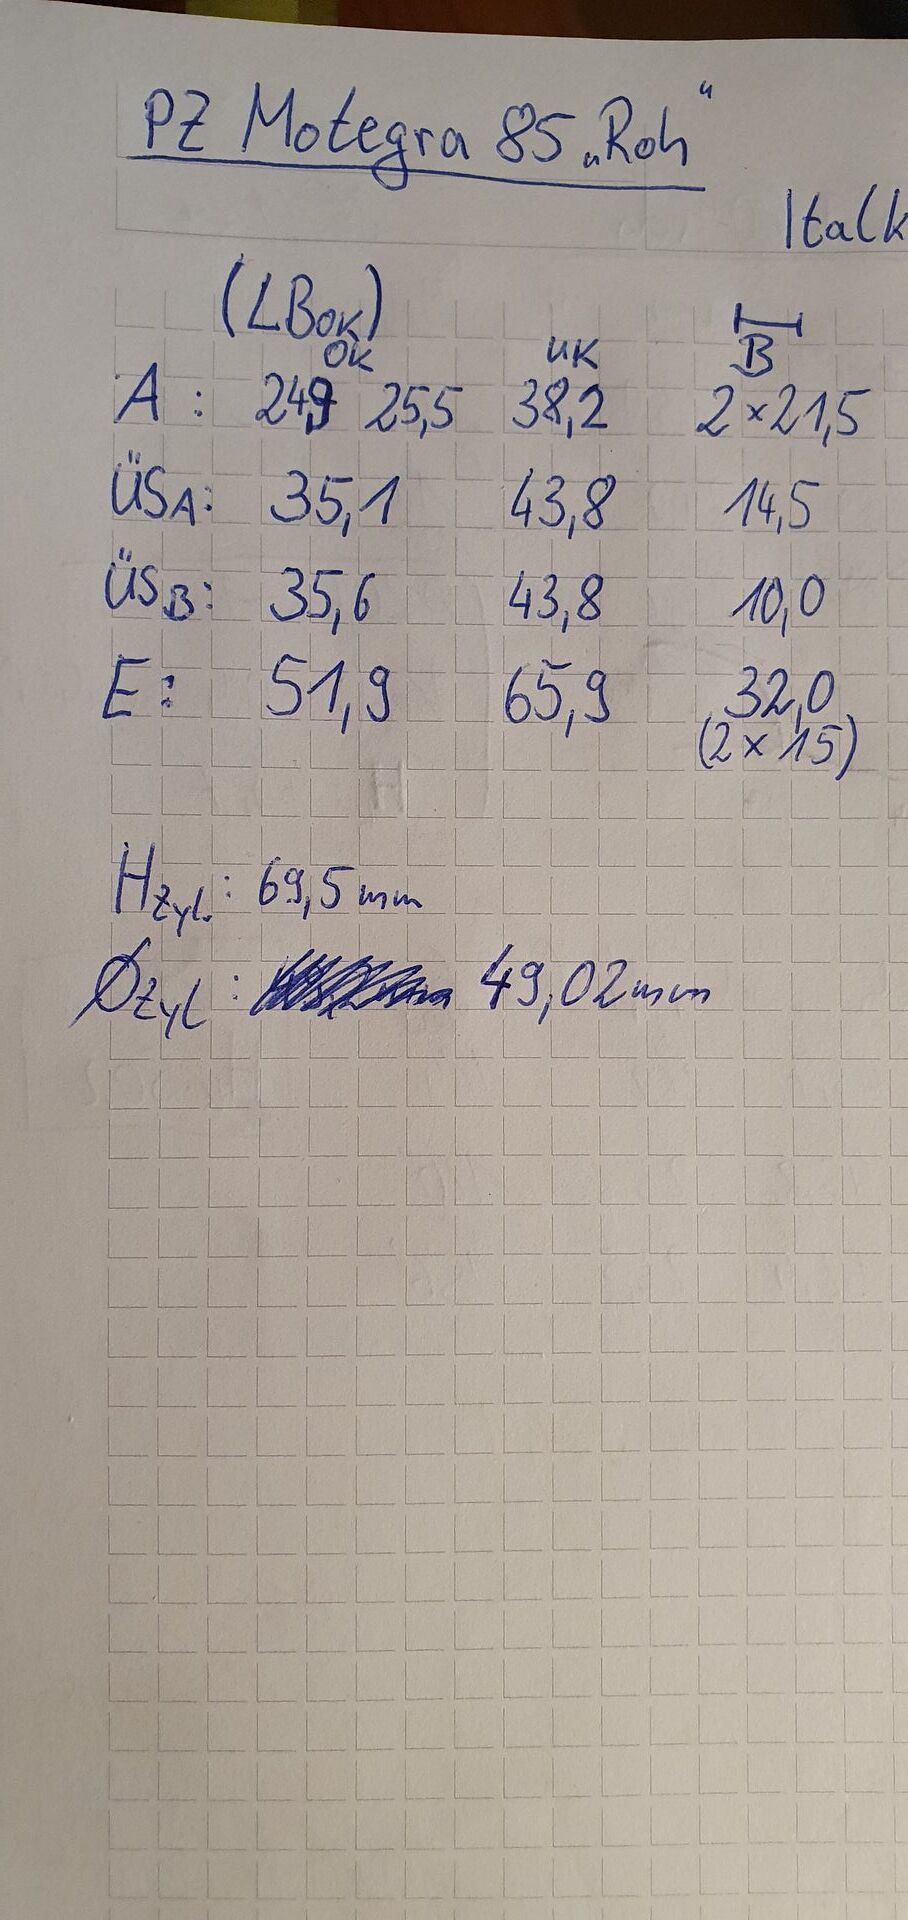 PZ Motegra 85 „Roh“
Italk
(LBOK)
OK UK B
A: 24,9 25,5 38,2 2×21,5
ÜSA: 35,1 43,8 14,5
ÜSB: 35,6 43,8 10,0
E: 51,9 65,9 32,0
(2×15)
HZyl.: 69,5mm
ØZyl: 49,02mm